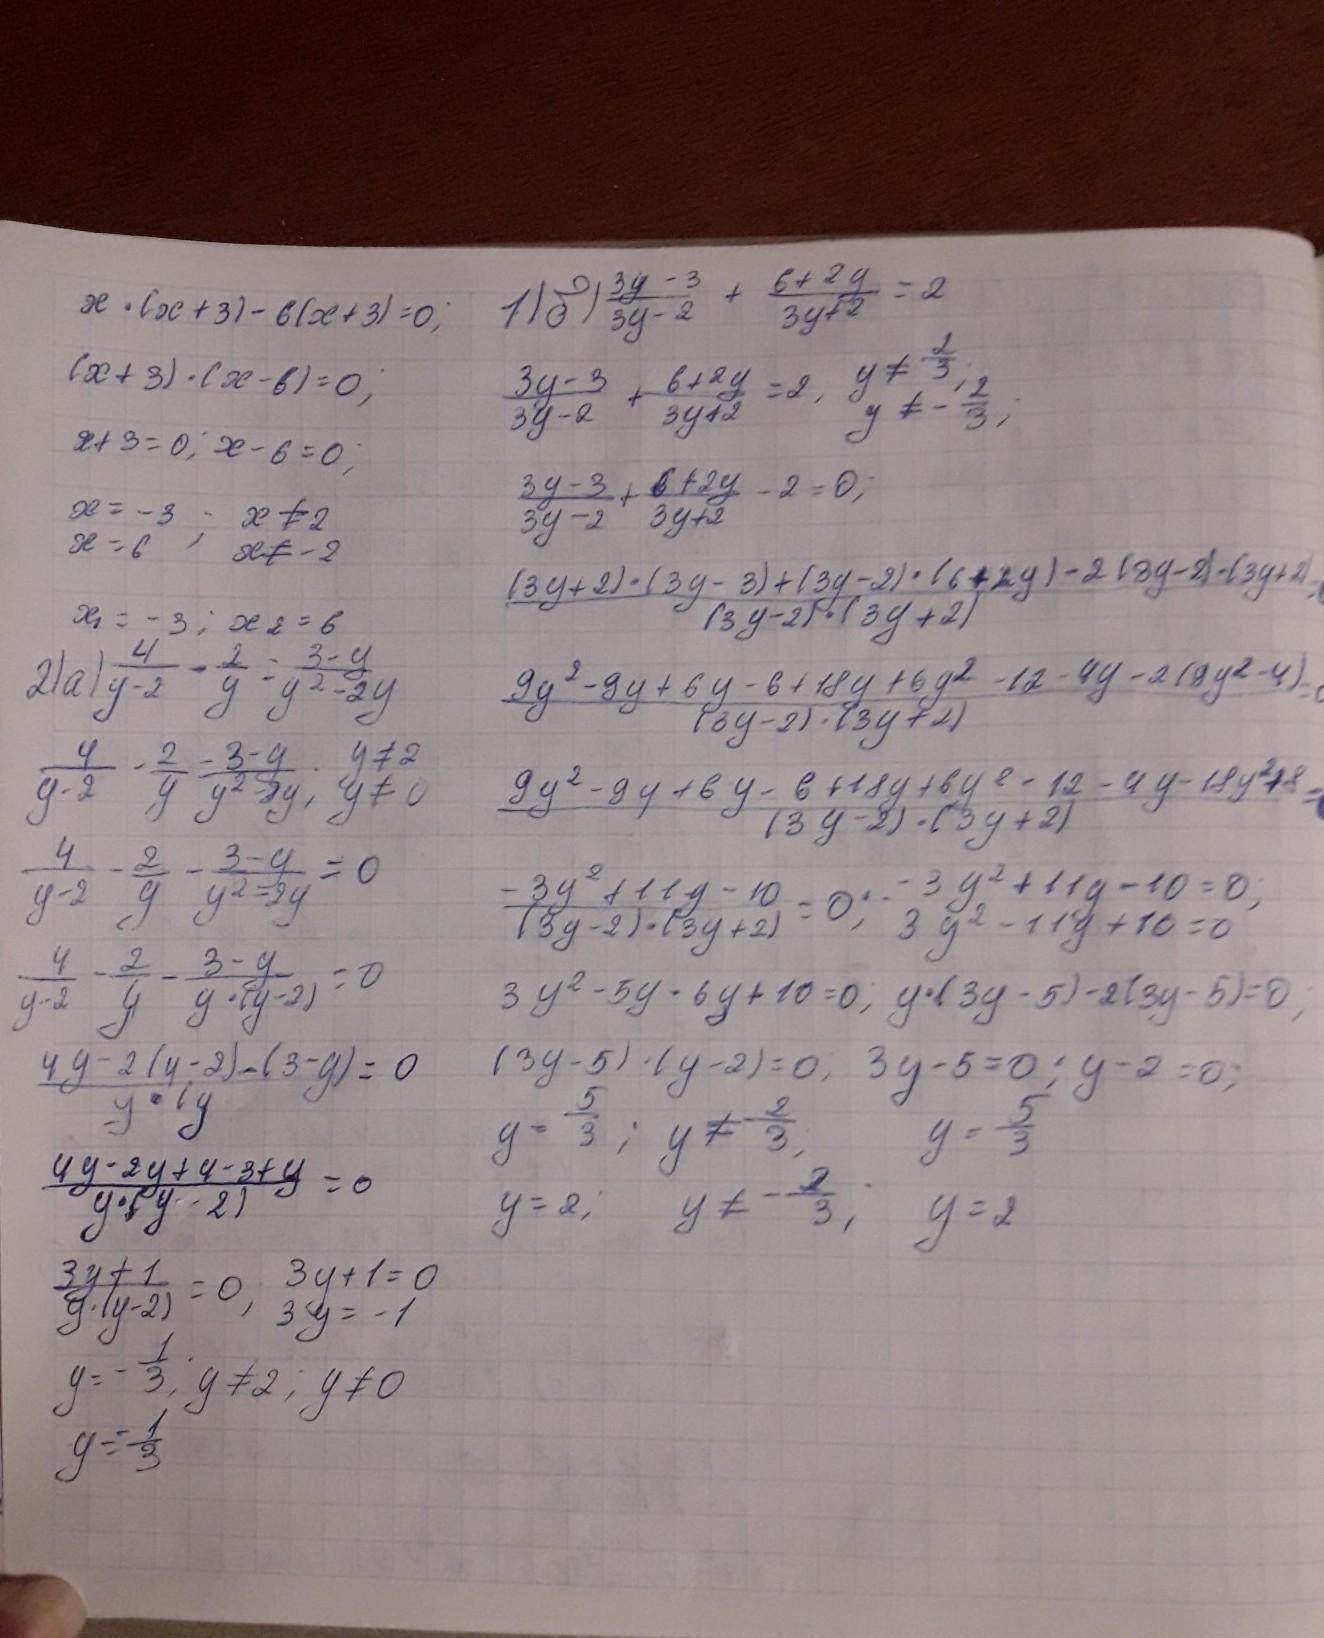 x·(x+3)-6(x+3)=0;
(x+3)·(x-6)=0;
x+3=0; x-6=0;
x=-3; x≠2
x=6, x≠-2
x₁=-3; x₂=6
2)а) 4/(y-2) - 2/y = (3-y)/(y²-2y)
4/(y-2) - 2/y = (3-y)/(y²-2y), y≠2
y≠0
4/(y-2) - 2/y - (3-y)/(y²-2y) = 0
4/(y-2) - 2/y - (3-y)/(y·(y-2)) = 0
(4y-2(y-2)-(3-y))/(y·(y = 0
(4y-2y+4-3+y)/(y·(y-2)) = 0
(3y+1)/(y·(y-2)) = 0, 3y+1=0
3y=-1
y=-1/3; y≠2; y≠0
y=-1/3
1)б) (3y-3)/(3y-2) + (6+2y)/(3y+2) = 2
(3y-3)/(3y-2) + (6+2y)/(3y+2) = 2, y≠2/3;
y≠-2/3;
(3y-3)/(3y-2) + (6+2y)/(3y+2) - 2 = 0;
((3y+2)·(3y-3)+(3y-2)·(6+2y)-2(3y-2)·(3y+2))/((3y-2)·(3y+2)) =
(9y²-9y+6y-6+18y+6y²-12-4y-2(9y²-4))/((3y-2)·(3y+2)) =
(9y²-9y+6y-6+18y+6y²-12-4y-18y²+8)/((3y-2)·(3y+2)) =
(-3y²+11y-10)/((3y-2)·(3y+2)) = 0; -3y²+11y-10=0;
3y²-11y+10=0
3y²-5y-6y+10=0; y·(3y-5)-2(3y-5)=0;
(3y-5)·(y-2)=0; 3y-5=0; y-2=0;
y=5/3; y≠2/3; y=5/3
y=2; y≠-2/3; y=2